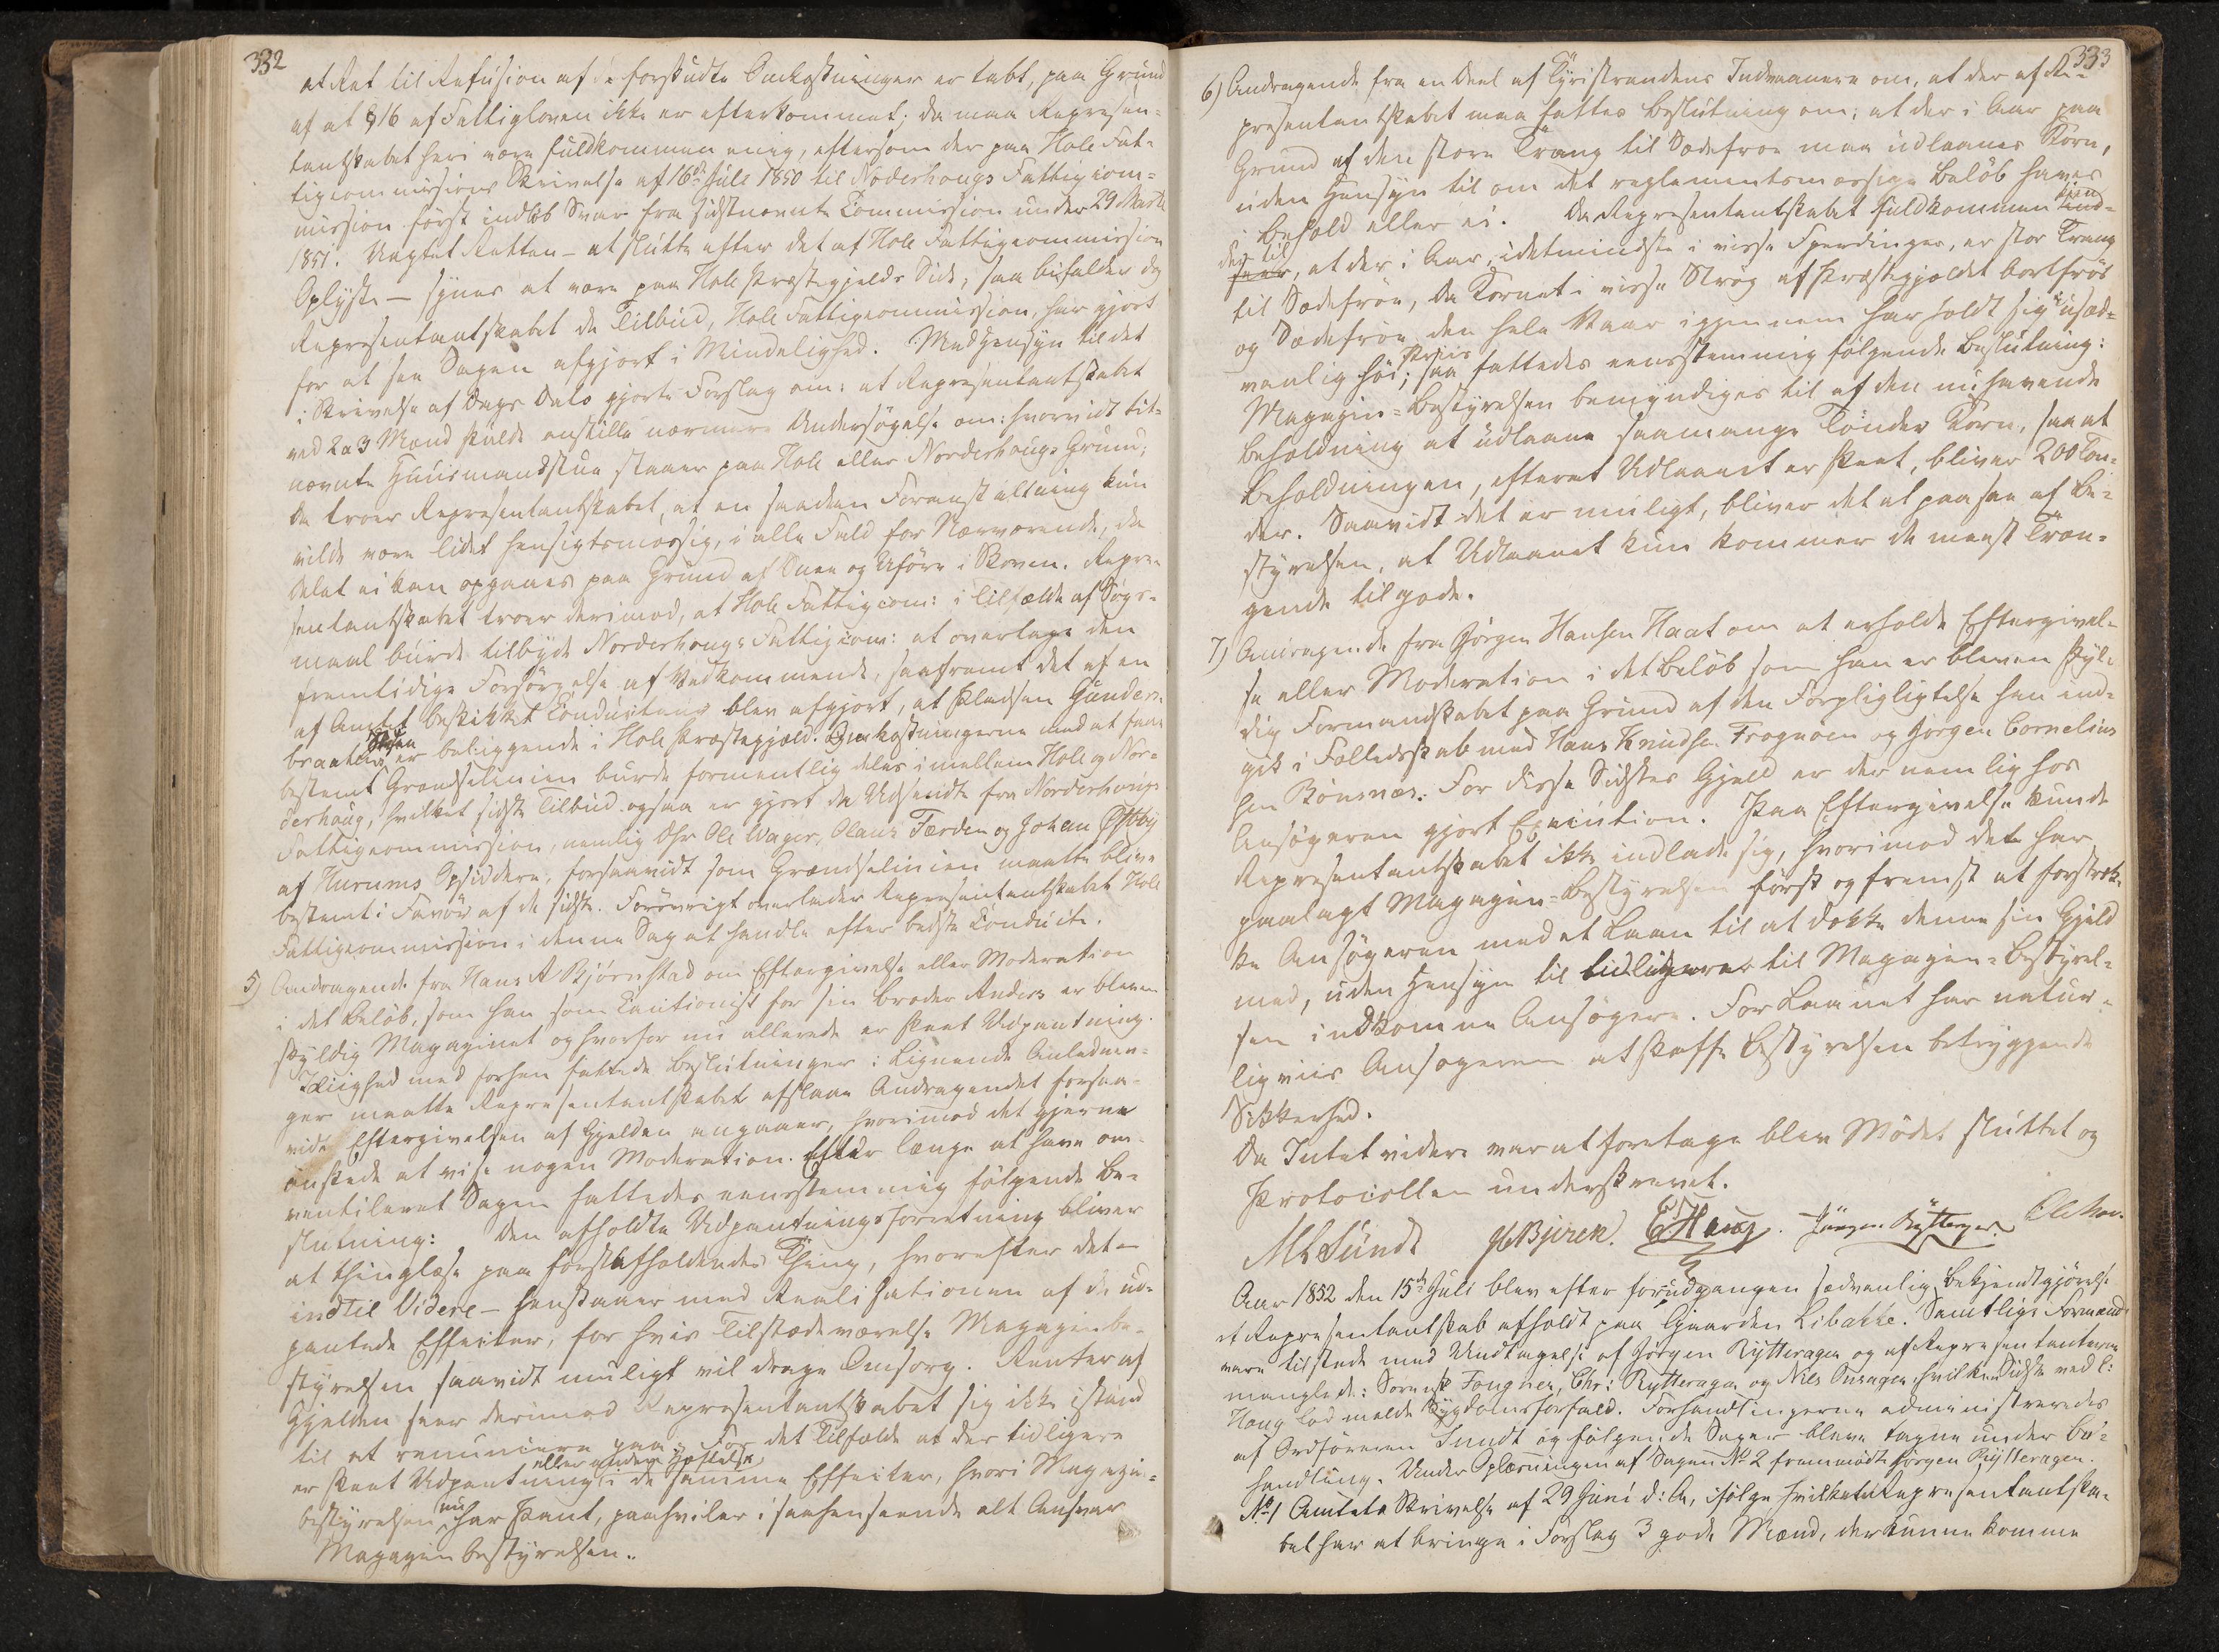 332
at Ret til Refusion af de forskudte Omkostninger er tabt, paa Grund
af at § 16 af Fattigloven ikke er efterkommet; da maa Represen-
tantskabet heri være fuldkommen enig, eftersom der paa Hole Fat-
tigcommissions Skrivelse af 16de Juli 1850 til Norderhougs Fattigcom-
mission først indløb Svar fra sidstnævnte Commission under 29 Marts
1851. Uagtet Retten – at slutte efter det af Hole Fattigcommission
Oplyste – synes at være paa Hole Præstegjelds Side, saa bifalder dog
Representantskabet de Tilbud, Hole Fattigcommission, har gjort
for at faa Sagen afgjort i Mindelighed. Med Hensyn til det
i Skrivelse af Dags Dato gjorte Forslag om: at Representantskabet
ved 2 a 3 Mænd skulde anstille nærmere Undersøgelse om: hvorvidt tit-
nævnte Huusmandsstue staaer paa Hole eller Norderhougs Grund;
da troer Representantskabet, at en saadan Foranstaltning kun
vilde være lidet hensigtsmæssig, i alle Fald for Nærværende, da
Delet ei kan opgaaes paa Grund af Snee og Uføre i Skoven. Repre-
sentantskabet troer derimod, at Hole Fattigcom: i Tilfælde af Søgs-
maal burde tilbyde Norderhougs Fattigcom: at overtage den
fremtidige Forsørgelse af Vedkommende, saafremt det af en
af Amtet beskikket Conducteur blev afgjort, at Pladsen Gunders-
braaten er beliggende i Hole Præstegjæld. Omkostningerne med at faae
bestemt Grændselinien burde formentlig deles imellem Hole og Nor-
derhoug, hvilket sidste Tilbud ogsaa er gjort de Udsendte fra Norderhougs
Fattigcommission, nemlig Dhr Ole Wager, Olaus Færden og Johan Østby
af Hurums Opsiddere, forsaavidt som Grændselinien maatte blive
bestemt i Faveur af de sidste. Forøvrigt overlader Representantskabet Hole
Fattigcommission i denne Sag at handle efter bedste Conduite.
5) Andragende fra Hans A Bjørnstad om Eftergivelse eller Moderation
i det Beløb, som han som Cautionist for sin Broder Anders er bleven
skyldig Magazinet og hvorfor nu allerede er skeet Udpantning.
I Liighed med forhen fattede Beslutninger i Lignende Anlednin-
ger maatte Representantskabet afslaae Andragendet forsaa-
vidt Eftergivelsen af Gjelden angaaer, hvorimod det gjerne
ønskede at vise nogen Moderation. Efter længe at have om-
ventileret Sagen fattedes eensstemmig følgende Be-
slutning: Den afholdte Udpantningsforretning bliver
at thinglæse paa førstafholdendes Thing, hvorefter det –
indtil Videre – henstaaer med Realisationen af de ud-
pantede Effecter, for hvis Tilstædeværelse Magazinbe-
styrelsen saavidt muligt vil drage Omsorg. Renter af
Gjelden seer derimod Representantskabet sig ikke istand
til at renuncere paa. For det Tilfælde at der tidligere
er skeet Udpantning eller anden Hæftelse i de samme Effecter, hvori Magazin-
bestyrelsen nu har Pant, paahviler i saahenseende alt Ansvar
Magazinbestyrelsen.
333
6) Andragende fra en Deel af Tyristrandens Indvaanere om, at der af Re-
presentantskabet maa fattes Beslutning om: at der i Aar paa
Grund af den store Trang til Sædefrøe maa udlaanes Korn,
uden Hensyn til om det reglementsmæssige Beløb haves
i Behold eller ei. Da Representantskabet fuldkommen kjen-
der til, at der i Aar, idetmindste i visse Fjerdinger, er stor Trang
til Sædefrøe, da Kornet i visse Strøg af Præstegjældet bortfrøs
og Sædefrøe den hele Vaar igjennem har holdt sig i usæd-
vanlig høi Priis; saa fattedes eensstemmig følgende Beslutning:
Magazin-Bestyrelsen bemyndiges til af den nuhavende
Beholdning at udlaane saamange Tønder Korn, saa at
Beholdningen, efterat Udlaanet er skeet, bliver 200 Tøn-
der. Saavidt det er muligt, bliver det at paasee af Be-
styrelsen, at Udlaanet kun kommer de meest Træn-
gende tilgode.
7) Andragende fra Jørgen Hansen Haat om at erholde Eftergivel-
se eller Moderation i det Beløb som han er bleven skyl-
dig Formandskabet paa Grund af den Forpligtigtelse han ind-
gik i Følledsskab med Hans Knudsen Frognøen og Jørgen Cornelius
sen Bønsnæs. For disse Sidstes Gjeld er der nemlig hos
Ansøgeren gjort Execution. Paa Eftergivelse kunde
Representantskabet ikke indlade sig, hvorimod det har
paalagt Magazin-Bestyrelsen først og fremst at forstræk-
ke Ansøgeren med et Laan til at dække denne sin Gjeld
med, uden Hensyn til tidligere til Magazin-Bestyrel-
sen indkomne Ansøgere. For Laanet har natur-
ligviis Ansøgeren at skaffe Bestyrelsen betryggende
Sikkerhed.
Da Intet videre var at foretage blev Mødet sluttet og
Protocollen underskrevet.
ML Sundt Bjerck. E Haug. Jørgen Rytterager.
Aar 1852 den 15de Juli blev efter forudgangen sædvanlig Bekjendtgjørelse
et Representantskab afholdt paa Gaarden Libakke. Samtlige Formænd
vare tilstede med Undtagelse af Jørgen Rytterager og af Representanterne
manglede: Sorensk. Fougner, Chr: Rytterager og Nils Onsager, hvilken Sidste ved E:
Haug lod melde Sygdomsforfald. Forhandlingerne administreredes
af Ordføreren Sundt og følgende Sager bleve tagne under Be-
handling. Under Oplæsningen af Sagen No 2 fremmødte Jørgen Rytterager.
No 1 Amtets Skrivelse af 29 Juni d: A, ifølge hvilken Representantska-
bet har at bringe i Forslag 3 gode Mænd, der kunne komme